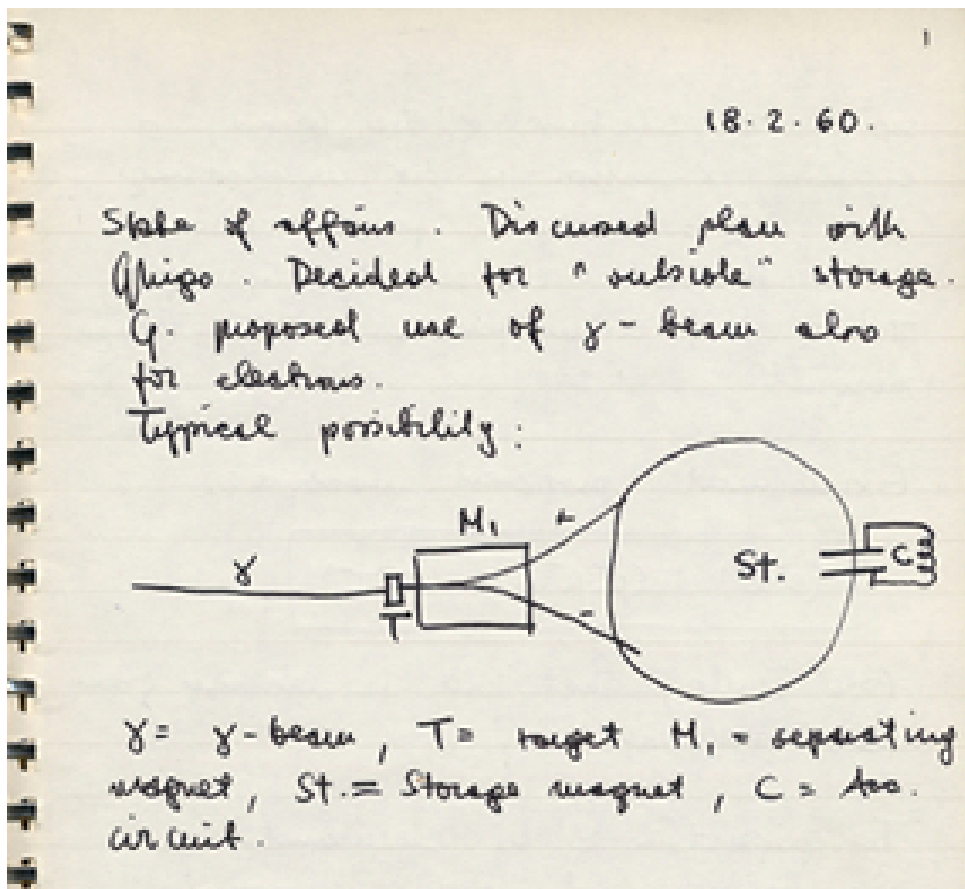 1
18.2.60.
State of affairs. Discussed plan with
Ghigo. Decided for "outside" storage.
G. proposed use of γ-beam also
for electrons.
Typical possibility:
M₁
+
γ
St.
C
T
-
γ = γ-beam, T = target M₁ = separating
magnet, St. = Storage magnet, C = Acc.
circuit.